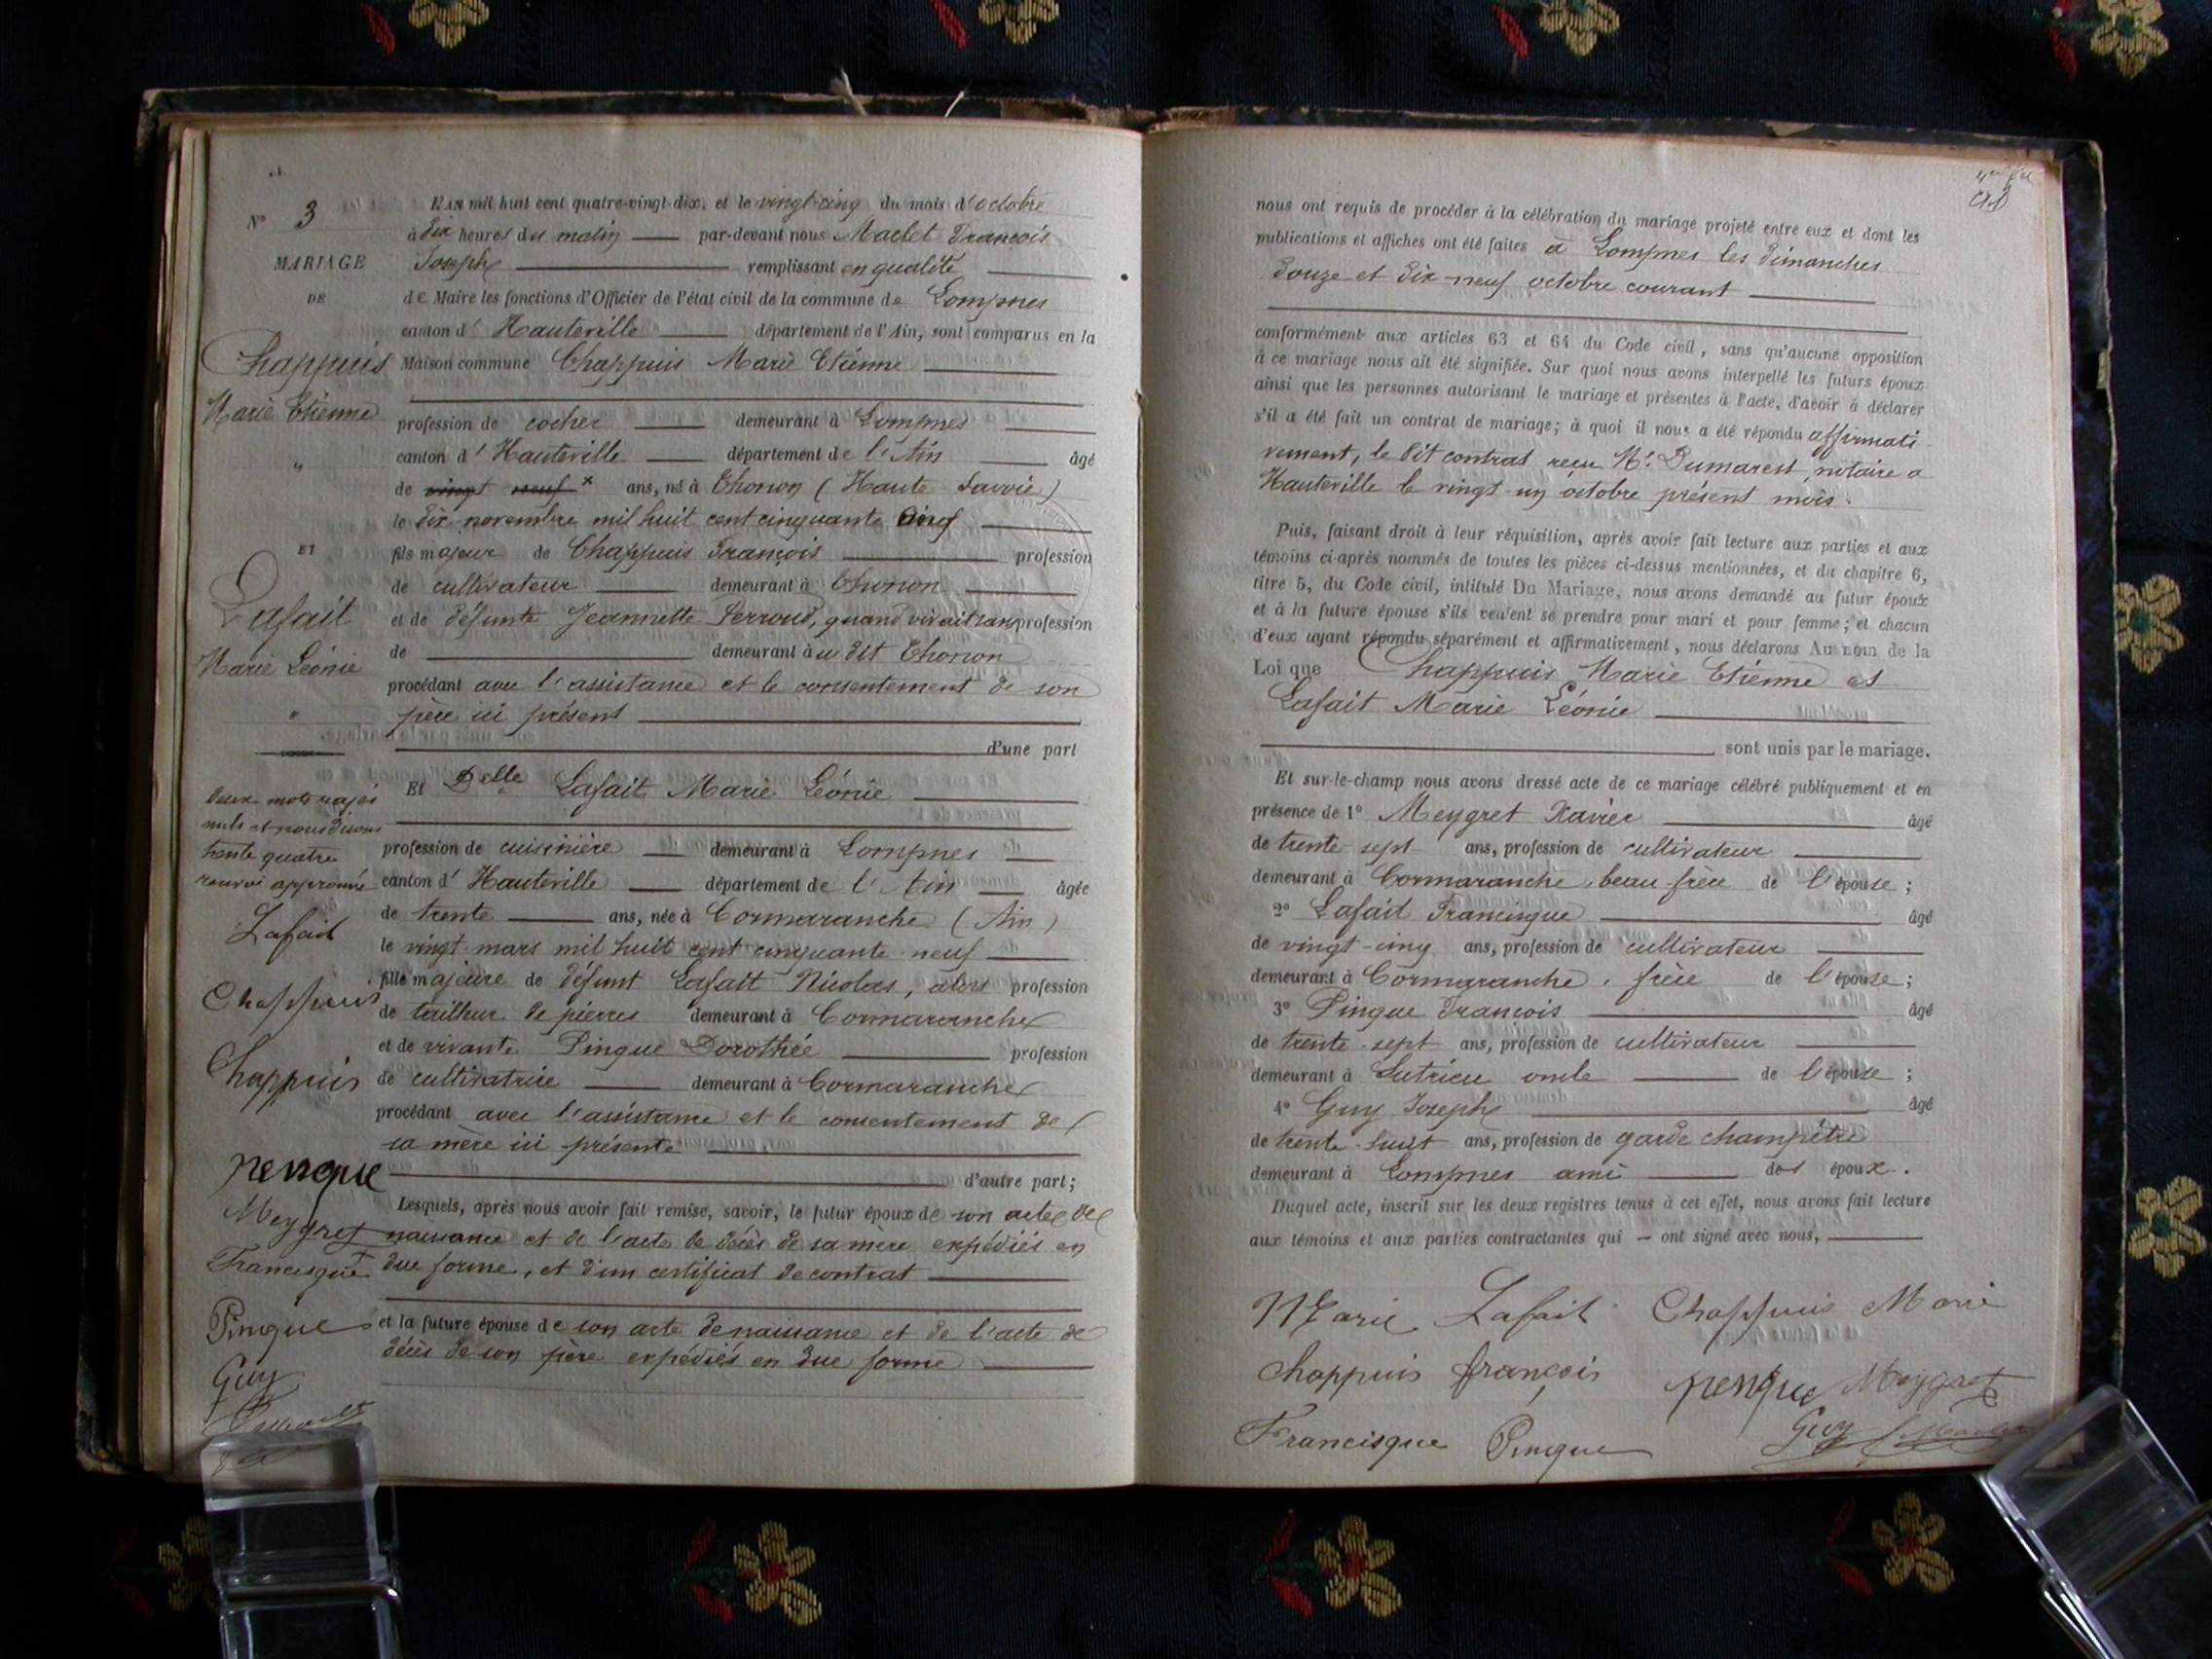 N° 3
MARIAGE
DE
Chappuis
Marie Etienne
"
ET
Lafait
Marie Léonie
"
deux mots rayés
nuls et nous disons
trente quatre
renvoi approuvé
Lafait
Chappuis
Chappuis
penque
Meygret
Francisque
Pingue
Guy
L'AN mil huit cent quatre-vingt-dix, et le vingt-cinq du mois d'octobre
à dix heures du matin par-devant nous Maclet François
Joseph remplissant en qualité
de Maire les fonctions d'Officier de l'état civil de la commune de Lompnes
canton d' Hauteville département de l'Ain, sont comparus en la
Maison commune Chappuis Marie Etienne
profession de cocher demeurant à Lompnes
canton d' Hauteville département de l'Ain âgé
de vingt neuf x ans, né à Thonon (Haute-Savoie)
le dix novembre mil huit cent cinquante cinq
fils majeur de Chappuis François profession
de cultivateur demeurant à Thonon
et de défunte Jeannette Perroud, quand vivait sans profession
de demeurant à u dit Thonon
procédant avec l'assistance et le consentement de son
père ici présent
d'une part
Et Delle Lafait Marie Léonie
profession de cuisinière demeurant à Lompnes
canton d' Hauteville département de l'Ain âgée
de trente ans, née à Cormaranche (Ain)
le vingt mars mil huit cent cinquante-neuf
fille majeure de défunt Lafait Nicolas, alors profession
de tailleur de pierres demeurant à Cormaranche
et de vivante Pingue Dorothée profession
de cultivatrice demeurant à Cormaranche
procédant avec l'assistance et le consentement de
sa mère ici présente
d'autre part;
Lesquels, après nous avoir fait remise, savoir, le futur époux de son acte de
naissance et de l'acte de décès de sa mère expédiés en
due forme, et d'un certificat de contrat
et la future épouse de son acte de naissance et de l'acte de
décès de son père expédiés en due forme
nous ont requis de procéder à la célébration du mariage projeté entre eux et dont les
publications et affiches ont été faites à Lompnes les dimanches
douze et dix-neuf octobre courant
conformément aux articles 63 et 64 du Code civil, sans qu'aucune opposition
à ce mariage nous ait été signifiée. Sur quoi nous avons interpellé les futurs époux
ainsi que les personnes autorisant le mariage et présentes à l'acte, d'avoir à déclarer
s'il a été fait un contrat de mariage; à quoi il nous a été répondu affirmati
vement, le dit contrat reçu Mr. Dumarest, notaire a
Hauteville le vingt-un octobre présent mois.
Puis, faisant droit à leur réquisition, après avoir fait lecture aux parties et aux
témoins ci-après nommés de toutes les pièces ci-dessus mentionnées, et du chapitre 6,
titre 5, du Code civil, intitulé Du Mariage, nous avons demandé au futur époux
et à la future épouse s'ils veulent se prendre pour mari et pour femme; et chacun
d'eux ayant répondu séparément et affirmativement, nous déclarons Au nom de la
Loi que Chappuis Marie Etienne et
Lafait Marie Léonie
sont unis par le mariage.
Et sur-le-champ nous avons dressé acte de ce mariage célébré publiquement et en
présence de 1° Meygret Xavier âgé
de trente-sept ans, profession de cultivateur
demeurant à Cormaranche, beau-frère de l'épouse;
2° Lafait Francisque âgé
de vingt-cinq ans, profession de cultivateur
demeurant à Cormaranche, frère de l'épouse;
3° Pingue François âgé
de trente-sept ans, profession de cultivateur
demeurant à Sutrieu oncle de l'épouse;
4° Guy Joseph âgé
de trente-huit ans, profession de garde champêtre
demeurant à Lompnes ami des époux.
Duquel acte, inscrit sur les deux registres tenus à cet effet, nous avons fait lecture
aux témoins et aux parties contractantes qui — ont signé avec nous,
Marie Lafait Chappuis Marie
Chappuis françois penque Meygret
Francisque Pingue Guy Maclet